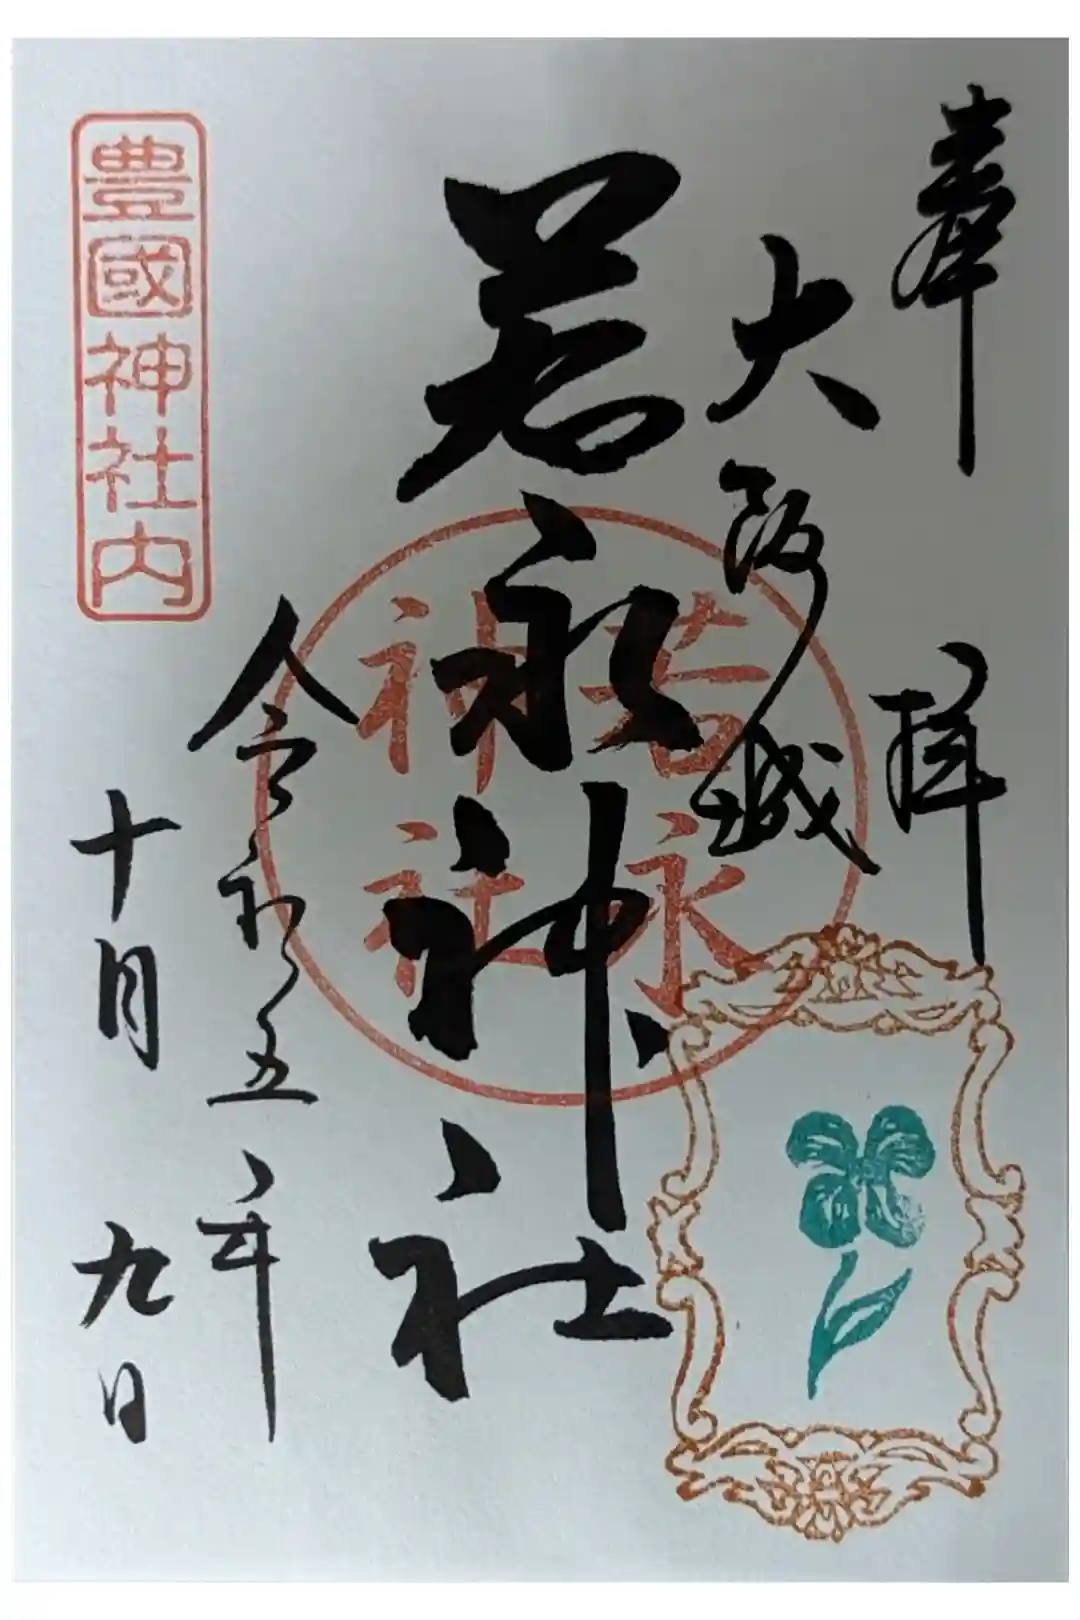 奉拝
大阪城
若永神社
若永
神社
令和五年
十月九日
豊國神社内